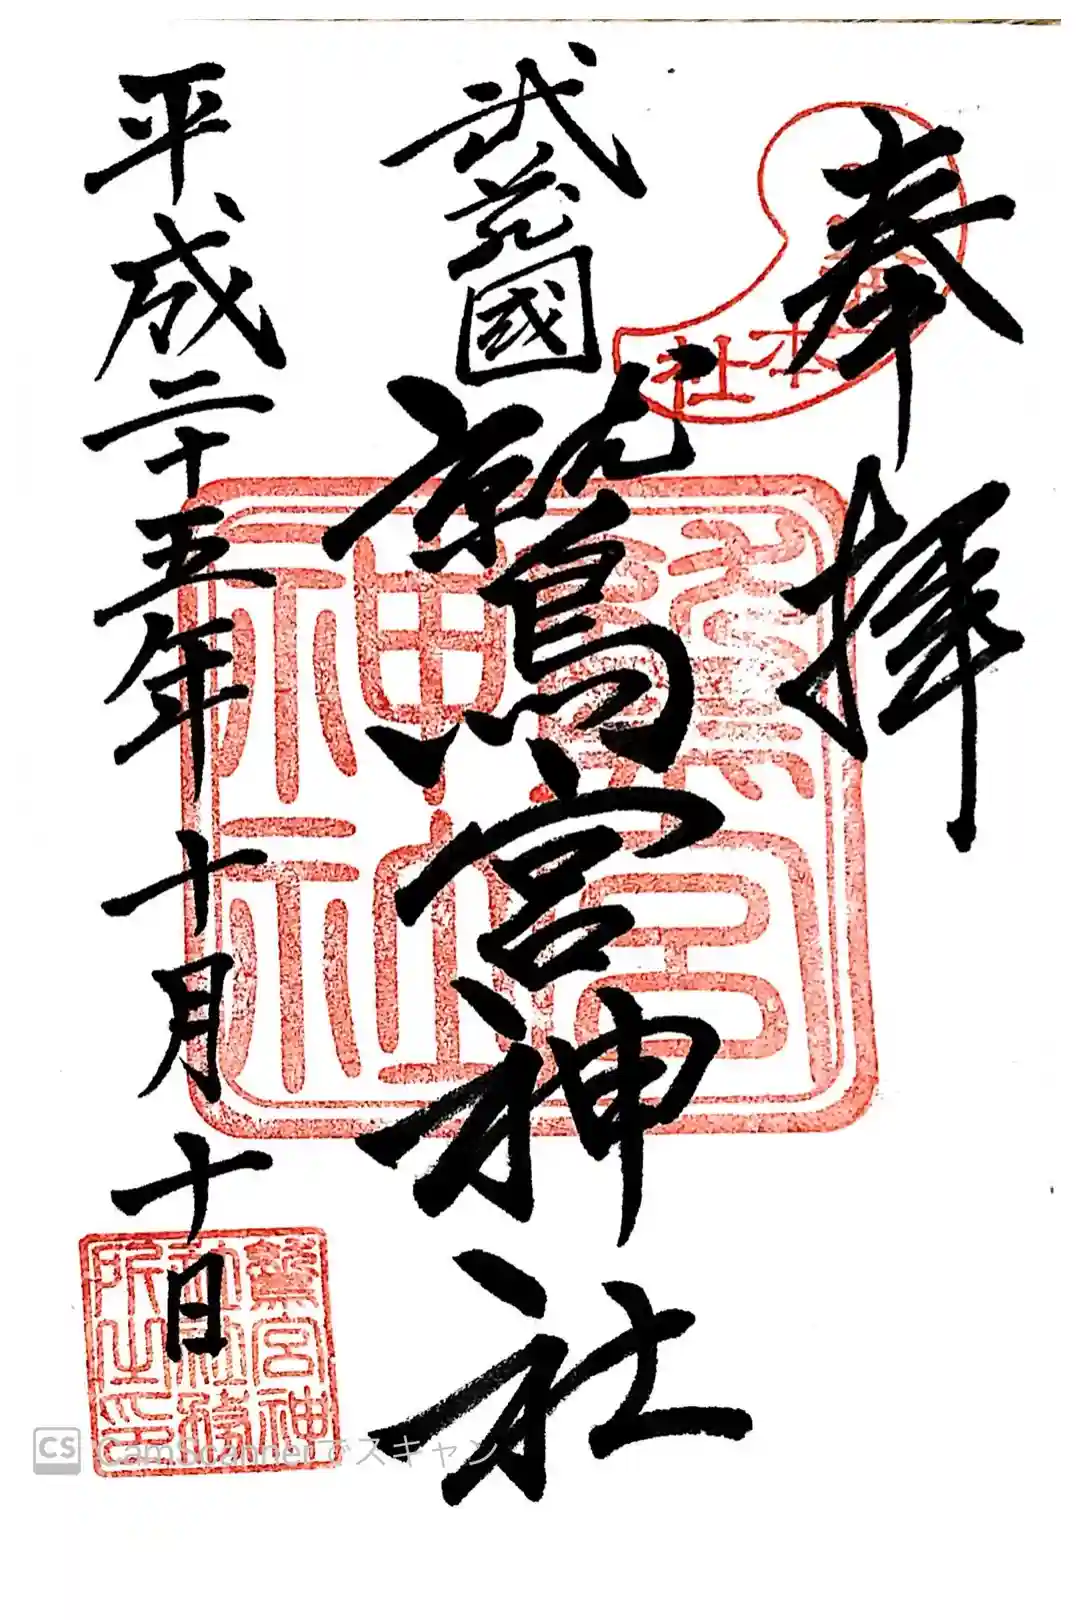 奉拝
本社
武蔵國
鷲宮神社
鷲宮神社
平成二十五年十月十日
鷲宮神
社社務
所之印
CS CamScannerでスキャン